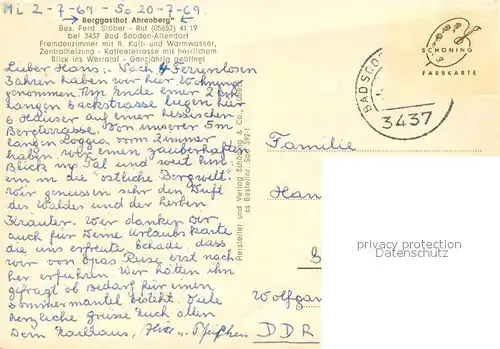 Mi 2-7-69 - So 20-7-69.
"Berggasthof Ahrenberg"
Bes. Ferd. Stöber - Ruf (05652) 41 19
bei 3437 Bad Sooden-Allendorf
Fremdenzimmer mit fl. Kalt- und Warmwasser,
Zentralheizung - Kaffeeterrasse mit herrlichem
Blick ins Werratal - Ganzjährig geöffnet
Lieber Hans: Nach 4 Ferienlosen
Jahren haben wir hier Wohnung
genommen. Am Ende einer 2
langen Sackstrasse liegen hier
6 Häuser auf einer hessischen
Bergterrasse. Von unserer 5m
langen Loggia, vom Zimmer
haben wir einen zauberhaften
Blick ins Tal und weit hin
ein in die "östliche Bergwelt".
Wir geniessen sehr den Duft
des Waldes und der herben
Kräuter. Wir danken Dir
auch für Deine Urlaubskarte
die uns erfreute, schade, dass
wir von Opas Reise erst nach
her erfuhren. Wir hätten ihn
gefragt ob Bedarf für einen
Sommermantel besteht. Viele
herzliche Grüsse Euch allen
Dein Karlhaus,
Hersteller und Verlag Schöning & Co., Lübeck
SCHÖNING
FARBKARTE
BAD SOO
3437
Familie
Han
Wolfgan
DDR
privat photo collection
DarkFiber.com